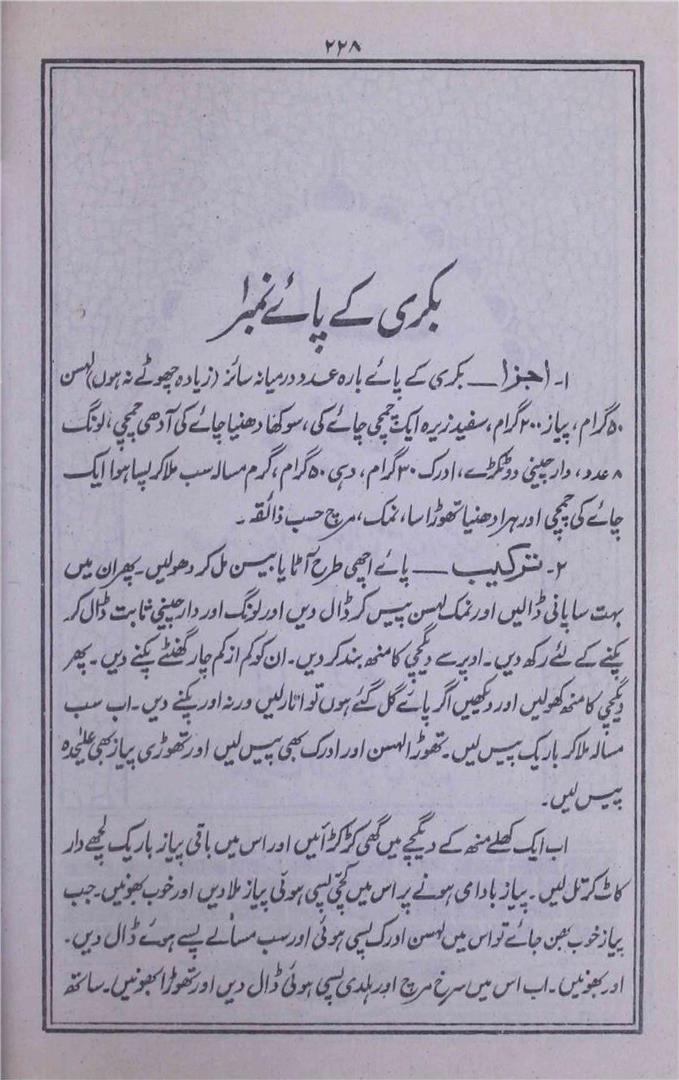 ۲۲۸
بکری کے پائے نمبر۱
۱۔ اجزا — بکری کے پائے بارہ عدد درمیانہ سائز (زیادہ چھوٹے نہ ہوں) لہسن
۵۰ گرام، پیاز ۲۰۰ گرام، سفید زیرہ ایک چمچی چائے کی، سوکھا دھنیا چائے کی آدھی چمچی، لونگ
۸ عدد، دار چینی دو ٹکڑے، ادرک ۳۰ گرام، دہی ۵۰ گرام، گرم مسالہ سب ملا کر پسا ہوا ایک
چائے کی چمچی اور ہرا دھنیا تھوڑا سا، نمک، مرچ حسب ذائقہ۔
۲۔ ترکیب — پائے اچھی طرح آٹا یا بیسن مل کر دھولیں۔ پھر ان میں
بہت سا پانی ڈالیں اور نمک لہسن پیس کر ڈال دیں اور لونگ اور دار چینی ثابت ڈال کر
پکنے کے لئے رکھ دیں۔ اوپر سے دیگچی کا منھ بند کر دیں۔ ان کو کم از کم چار گھنٹے پکنے دیں۔ پھر
دیگچی کا منھ کھولیں اور دیکھیں اگر پائے گل گئے ہوں تو اتار لیں ورنہ اور پکنے دیں۔ اب سب
مسالہ ملا کر باریک پیس لیں۔ تھوڑا لہسن اور ادرک بھی پیس لیں اور تھوڑی پیاز بھی علیٰحدہ
پیس لیں۔
اب ایک کھلے منھ کے دیگچے میں گھی کڑکڑائیں اور اس میں باقی پیاز باریک لچھے دار
کاٹ کر تل لیں۔ پیاز بادامی ہونے پر اس میں کچی پسی ہوئی پیاز ملا دیں اور خوب بھونیں۔ جب
پیاز خوب بھن جائے تو اس میں لہسن ادرک پسی ہوئی اور سب مسالے پسے ہوئے ڈال دیں۔
اور بھونیں۔ اب اس میں سرخ مرچ اور ہلدی پسی ہوئی ڈال دیں اور تھوڑا بھونیں۔ ساتھ